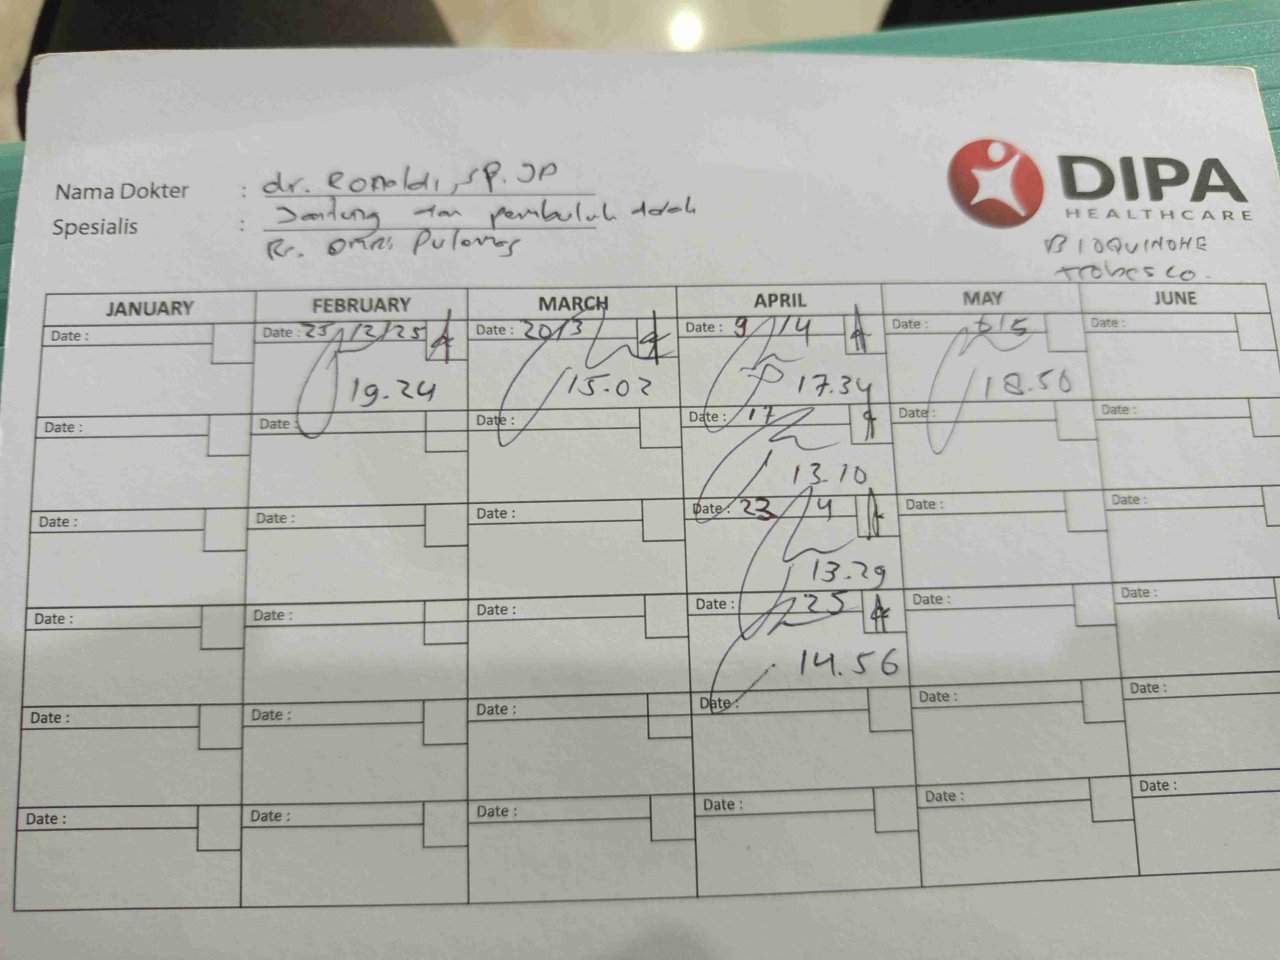 DIPA
HEALTHCARE
Nama Dokter : dr. Ronaldi, sp. JP
Spesialis : Jantung dan pembuluh darah
Rs. Omni Pulomas
BIOQUINONE
JANUARY FEBRUARY MARCH APRIL MAY JUNE
Date : Date : 25/2/25 Date : 20/3 Date : 9/4 Date : 6/5 Date :
19.24 15.02 17.34 18.50
Date : Date : Date : Date : 17 Date : Date :
13.10
Date : Date : Date : Date : 23 4 Date : Date :
13.29
Date : Date : Date : Date : 25 Date : Date :
14.56
Date : Date : Date : Date : Date : Date :
Date : Date : Date : Date : Date : Date :